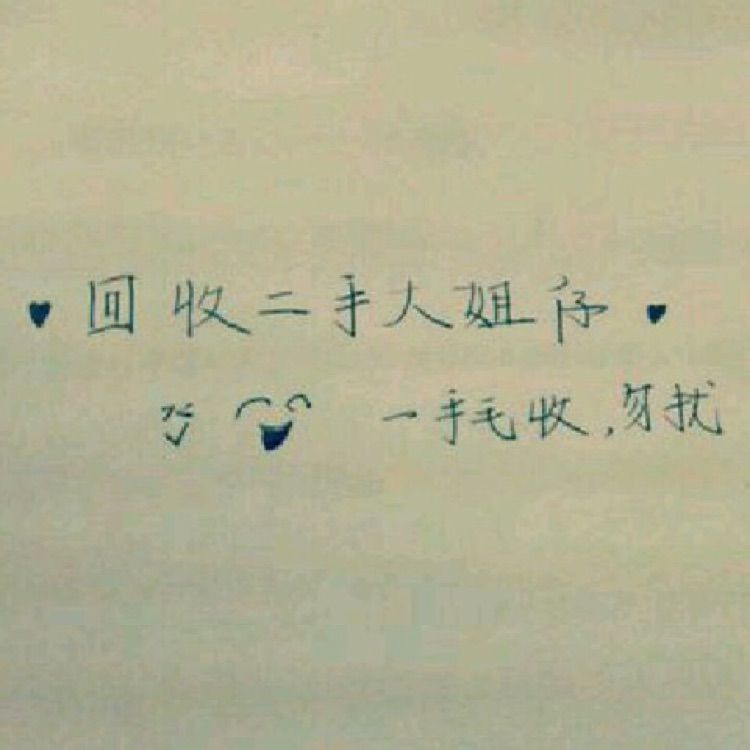 回收二手人姐仔
一手毛收,勿扰